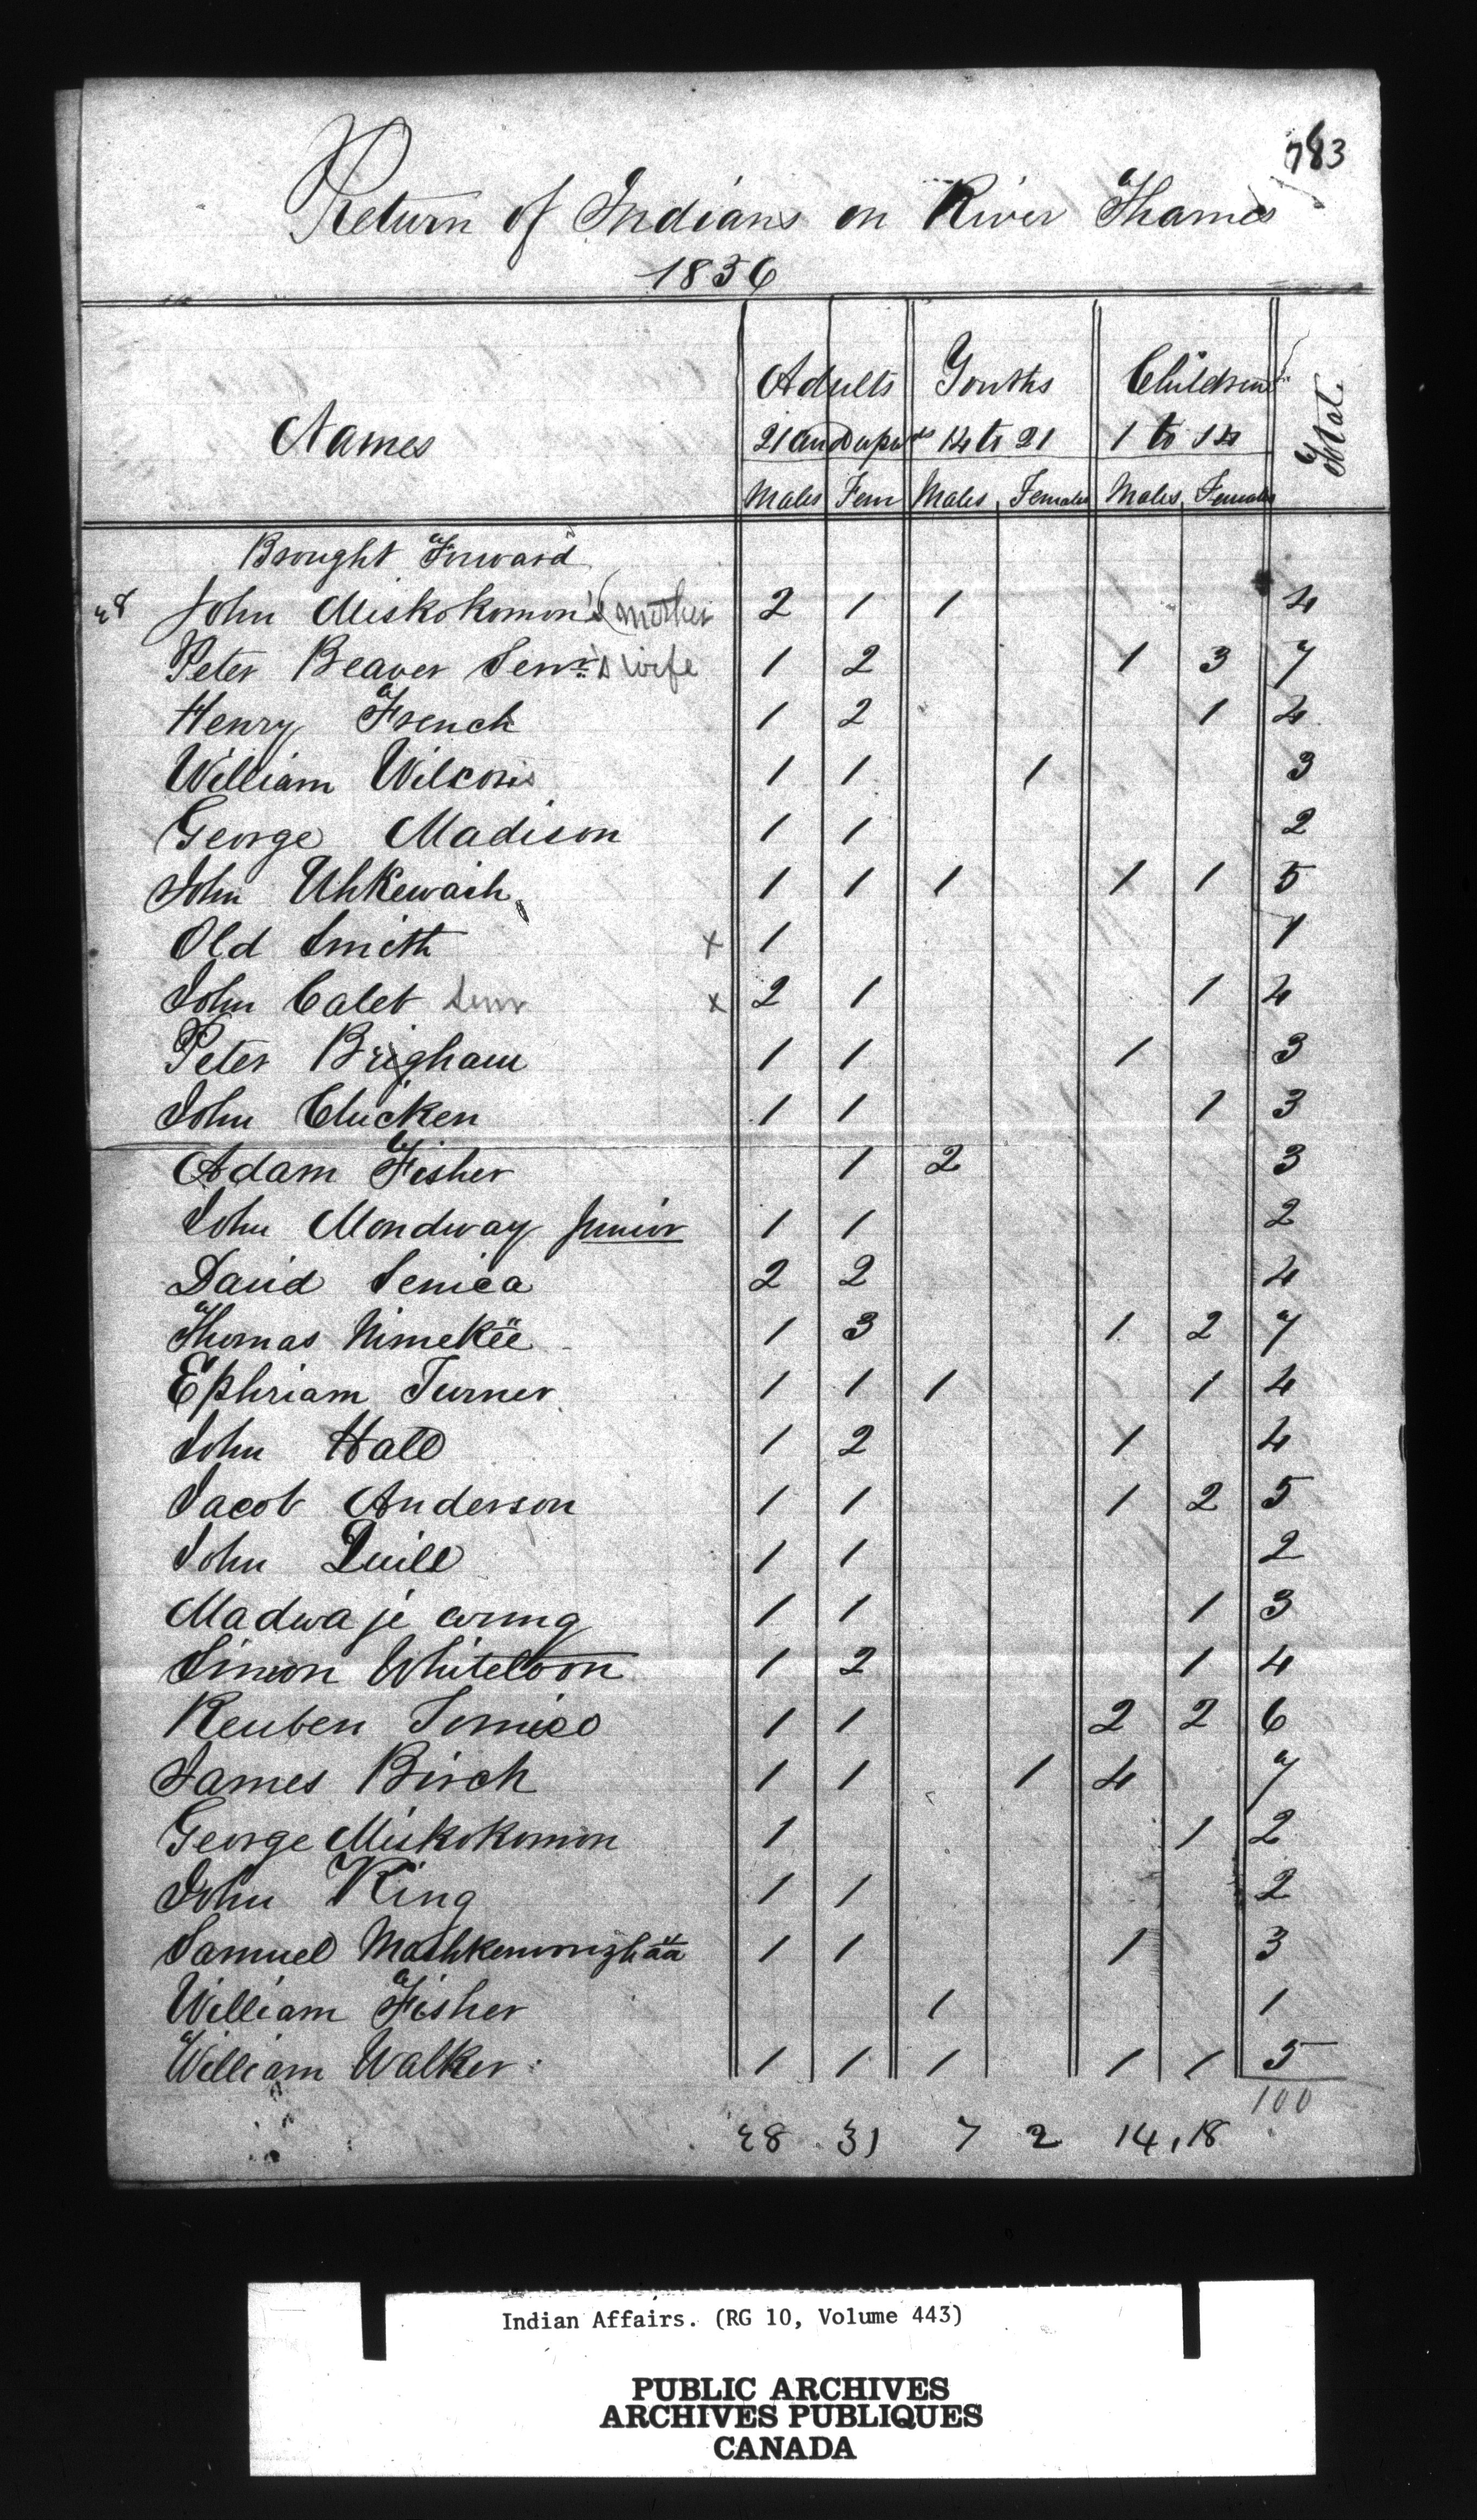 783
Return of Indians on River Thames
1836
Names Adults Youths Children Total
21 and upwds 14 to 21 1 to 14
Males Fem Males Females Males Females
Brought Forward
John Miskokomon's (mother 2 1 1 4
Peter Beaver Senr's wife 1 2 1 3 7
Henry French 1 2 1 4
William Wilcox 1 1 1 3
George Madison 1 1 2
John Uhkewaih 1 1 1 1 1 5
Old Smith x 1 1
John Caleb Senr x 2 1 1 4
Peter Brigham 1 1 1 3
John Chicken 1 1 1 3
Adam Fisher 1 2 3
John Mondway Junior 1 1 2
David Senica 2 2 4
Thomas Nimekëë 1 3 1 2 7
Ephriam Turner 1 1 1 1 4
John Hall 1 2 1 4
Jacob Anderson 1 1 1 2 5
John Quill 1 1 2
Madwa je 1 1 1 3
Simon Whiteloon 1 2 1 4
Reuben Tomico 1 1 2 2 6
James Birch 1 1 1 4 7
George Miskokomon 1 1 2
John King 1 1 2
Samuel 1 1 1 3
William Fisher 1 1
William Walker 1 1 1 1 1 5
100
28 31 7 2 14, 18
Indian Affairs. (RG 10, Volume 443)
PUBLIC ARCHIVES
ARCHIVES PUBLIQUES
CANADA